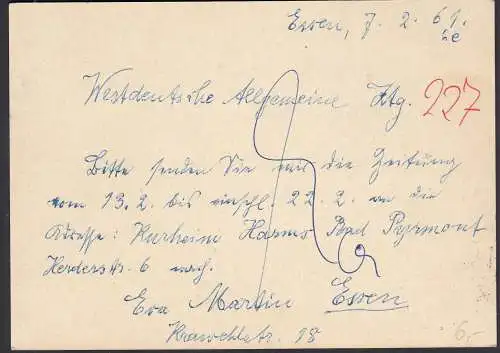 Essen, 7. 2. 61.
Westdeutsche Allgemeine Ztg.
227
Bitte senden Sie mir die Zeitung
vom 13.2. bis einschl. 22.2. an die
Adresse: Kurheim Harms Bad Pyrmont
Herderstr. 6 nach.
Eva Martin Essen
Krawehlstr. 98
6,-